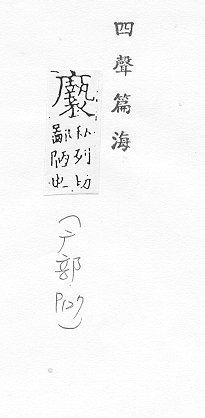 四聲篇海
私列切
鄙陋也
(广部 P127)